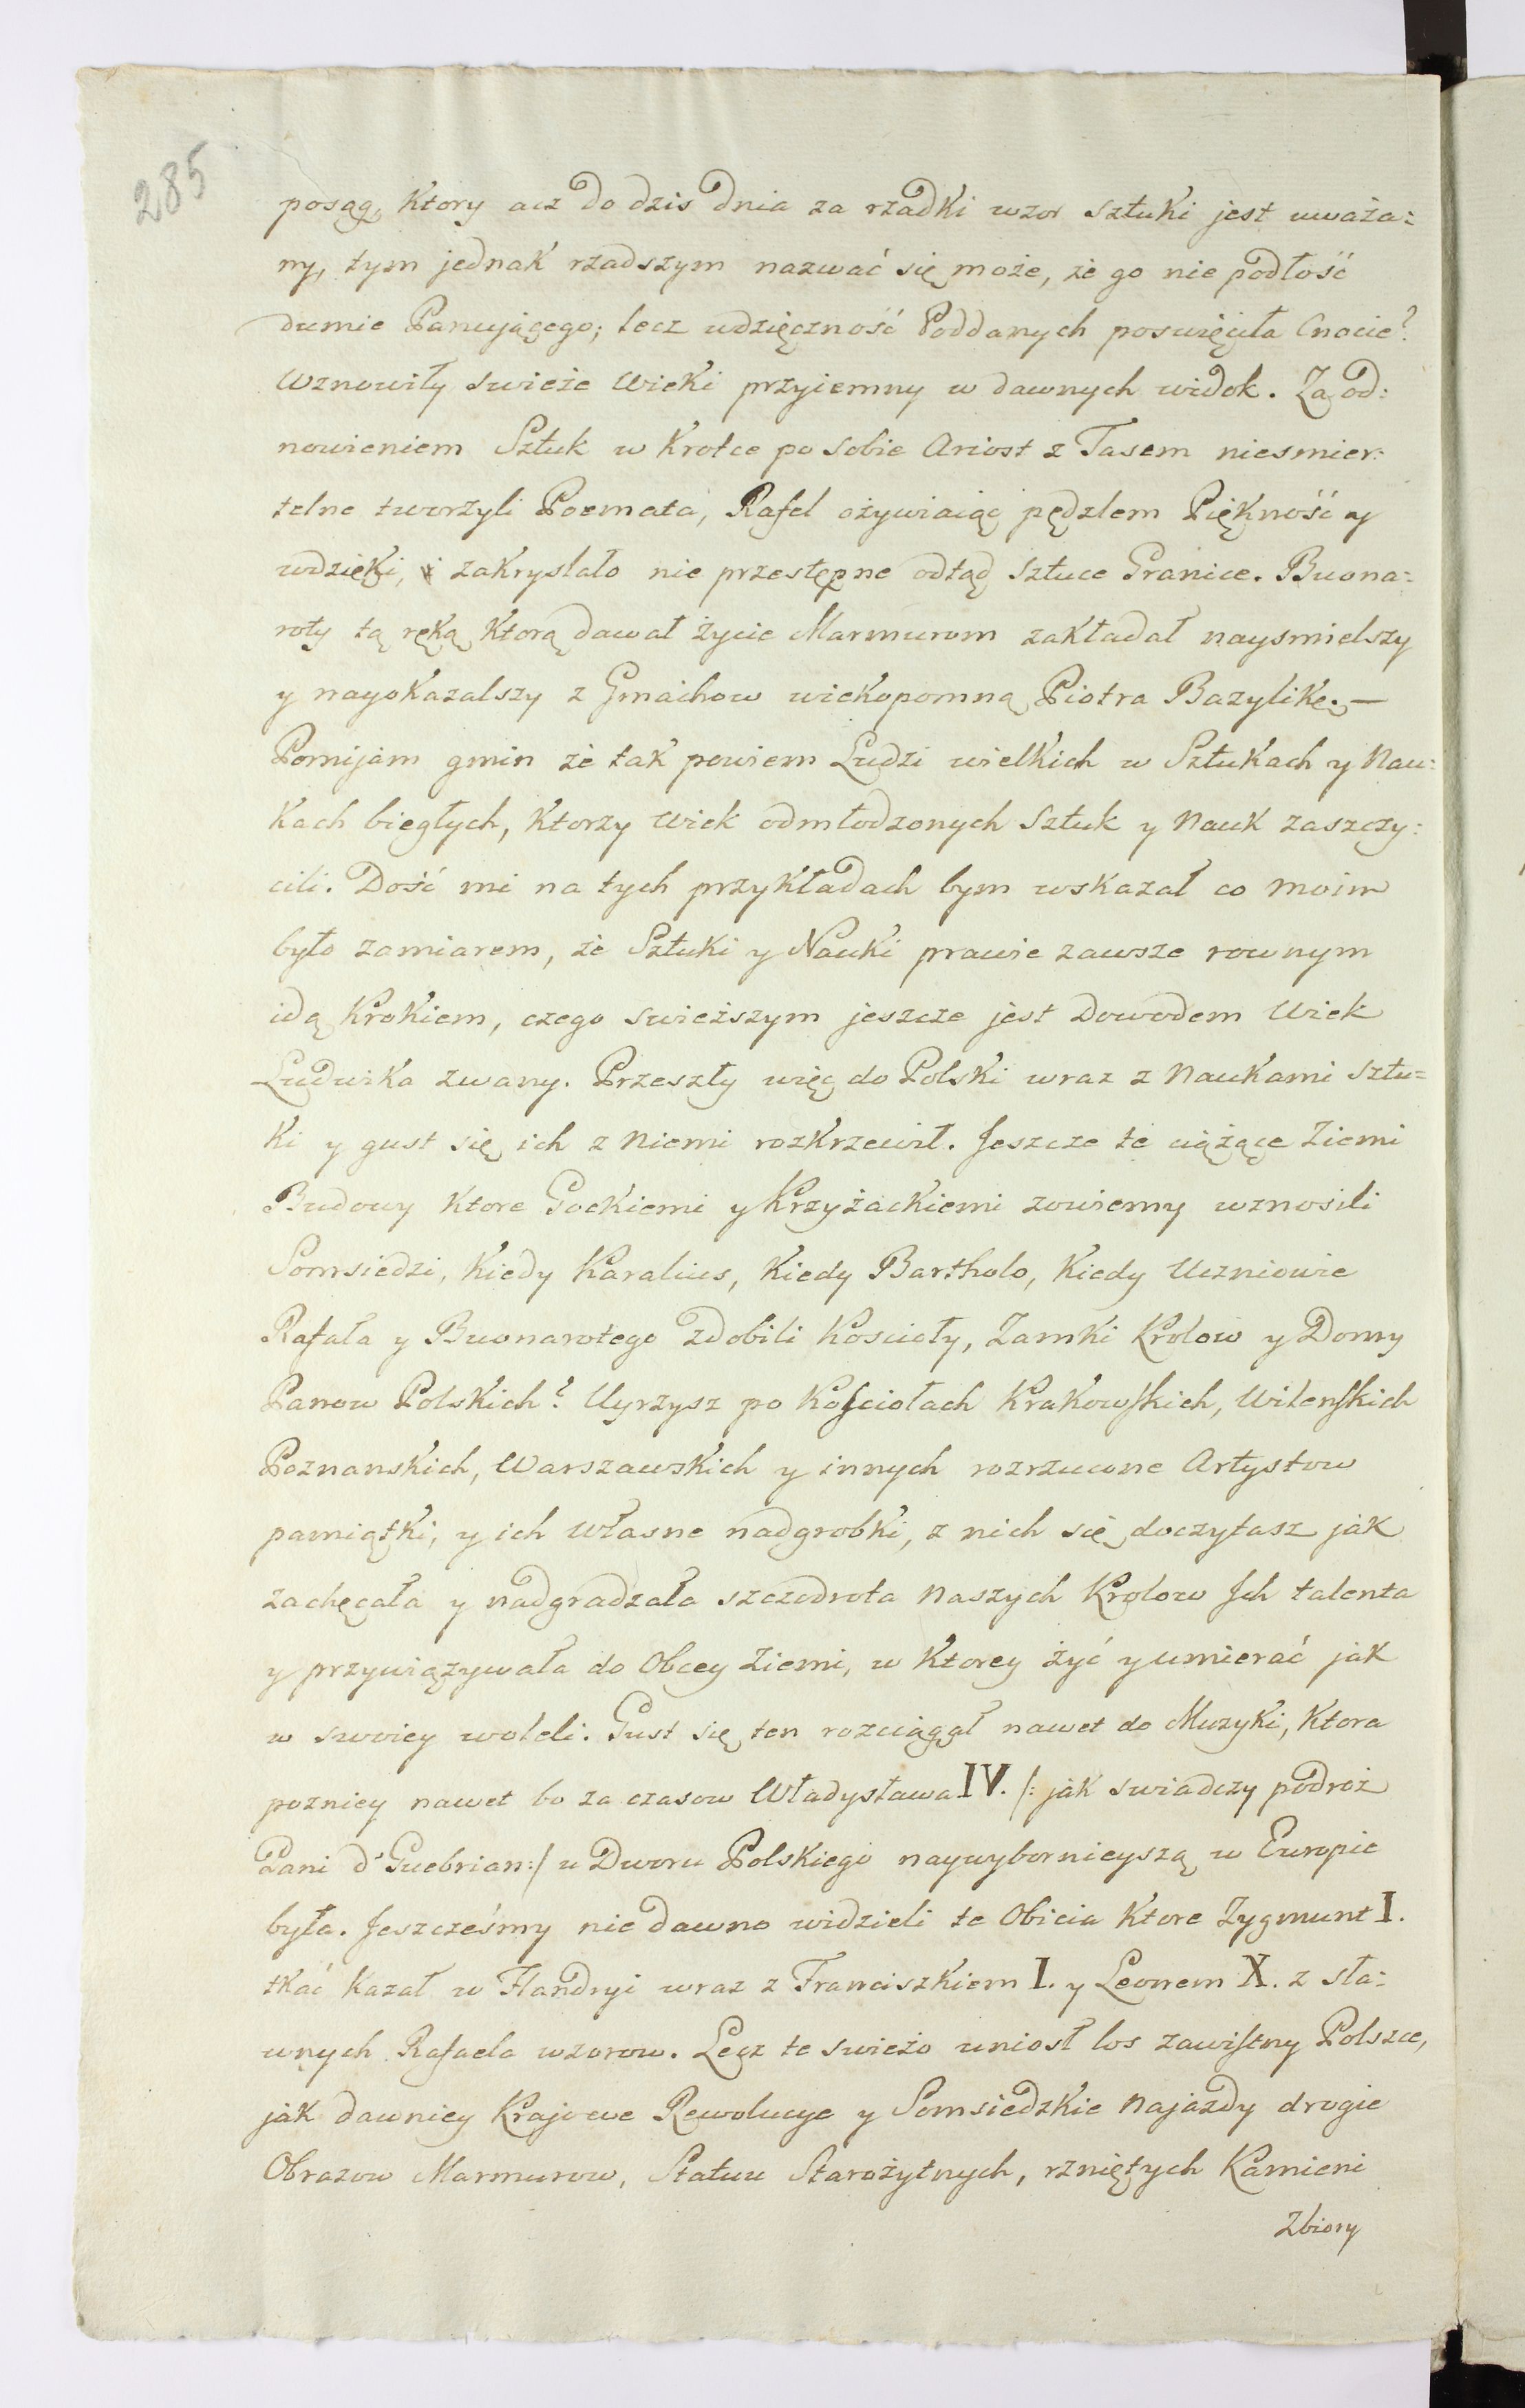 285
posąg, Ktory acz do dzis dnia za rzadki wzor sztuki jest uważa:
ny, tym jednak rzadszym nazwać się może, że go nie podłość
dumie Panującego; lecz wdzięczność Poddanych poswięciła Cnocie?
Wznowiły swieże Wieki przyiemny w dawnych widok. Za od:
nowieniem Sztuk w Krotce po sobie Ariost z Tasem niesmier:
telne tworzyli Poemata, Rafel ożywiaiąc pędzlem Piękność y
wdzięki, zakryslało nie przestępne odtąd Sztuce Granice. Buona:
roty tą ręką Ktorą dawał życie Marmurom zakładał naysmielszy
y nayokazalszy z Gmachow wiekopomną Piotra Bazylikę. —
Pomijam gmin że tak powiem Ludzi wielkich w Sztukach y Nau:
Kach biegłych, Ktorzy Wiek odmłodzonych Sztuk y Nauk zaszczy:
cili. Dość mi na tych przykładach bym wskazał co moim
było zamiarem, że Sztuki y Nauki prawie zawsze rownym
idą Krokiem, czego swieższym jeszcze jest Dowodem Wiek
Ludwika zwany. Przeszły więc do Polski wraz z Naukami sztu=
Ki y gust się ich z Niemi rozkrzewił. Jeszcze te ciążące Ziemi
Budowy Ktore Gockiemi y Krzyżackiemi zowiemy wznosili
Somsiedzi, Kiedy Karalius, Kiedy Bartholo, Kiedy Uczniowie
Rafała y Buonarotego zdobili Koscioły, Zamki Krolow y Domy
Panow Polskich? Uyrzysz po Kościołach Krakowskich, Wilenskich
Poznanskich, Warszawskich y innych rozrzucone Artystow
pamiątki, y ich własne nadgrobki, z nich się doczytasz jak
zachęcała y nadgradzała szczodrota Naszych Krolow Jch talenta
y przywiązywała do Obcey Ziemi, w Ktorey żyć y umierać jak
w swoiey woleli. Gust się ten rozciągał nawet do Muzyki, Ktora
pozniey nawet bo za czasow Władysława IV. /: jak swiadczy podroż
Pani d'Guebrian :/ u Dworu Polskiego naywybornieyszą w Europie
była. Jeszcześmy nie dawno widzieli te Obicia Ktore Zygmunt I.
tkać Kazał w Flandryi wraz z Franciszkiem I. y Leonem X. z sła:
wnych Rafaela wzorow. Lecz te swieżo uniosł los zawistny Polszce,
jak dawniey Krajowe Rewolucye y Somsiedzkie Najazdy drogie
Obrazow Marmurow, Statuu Starożytnych, rzniętych Kamieni
Zbiory